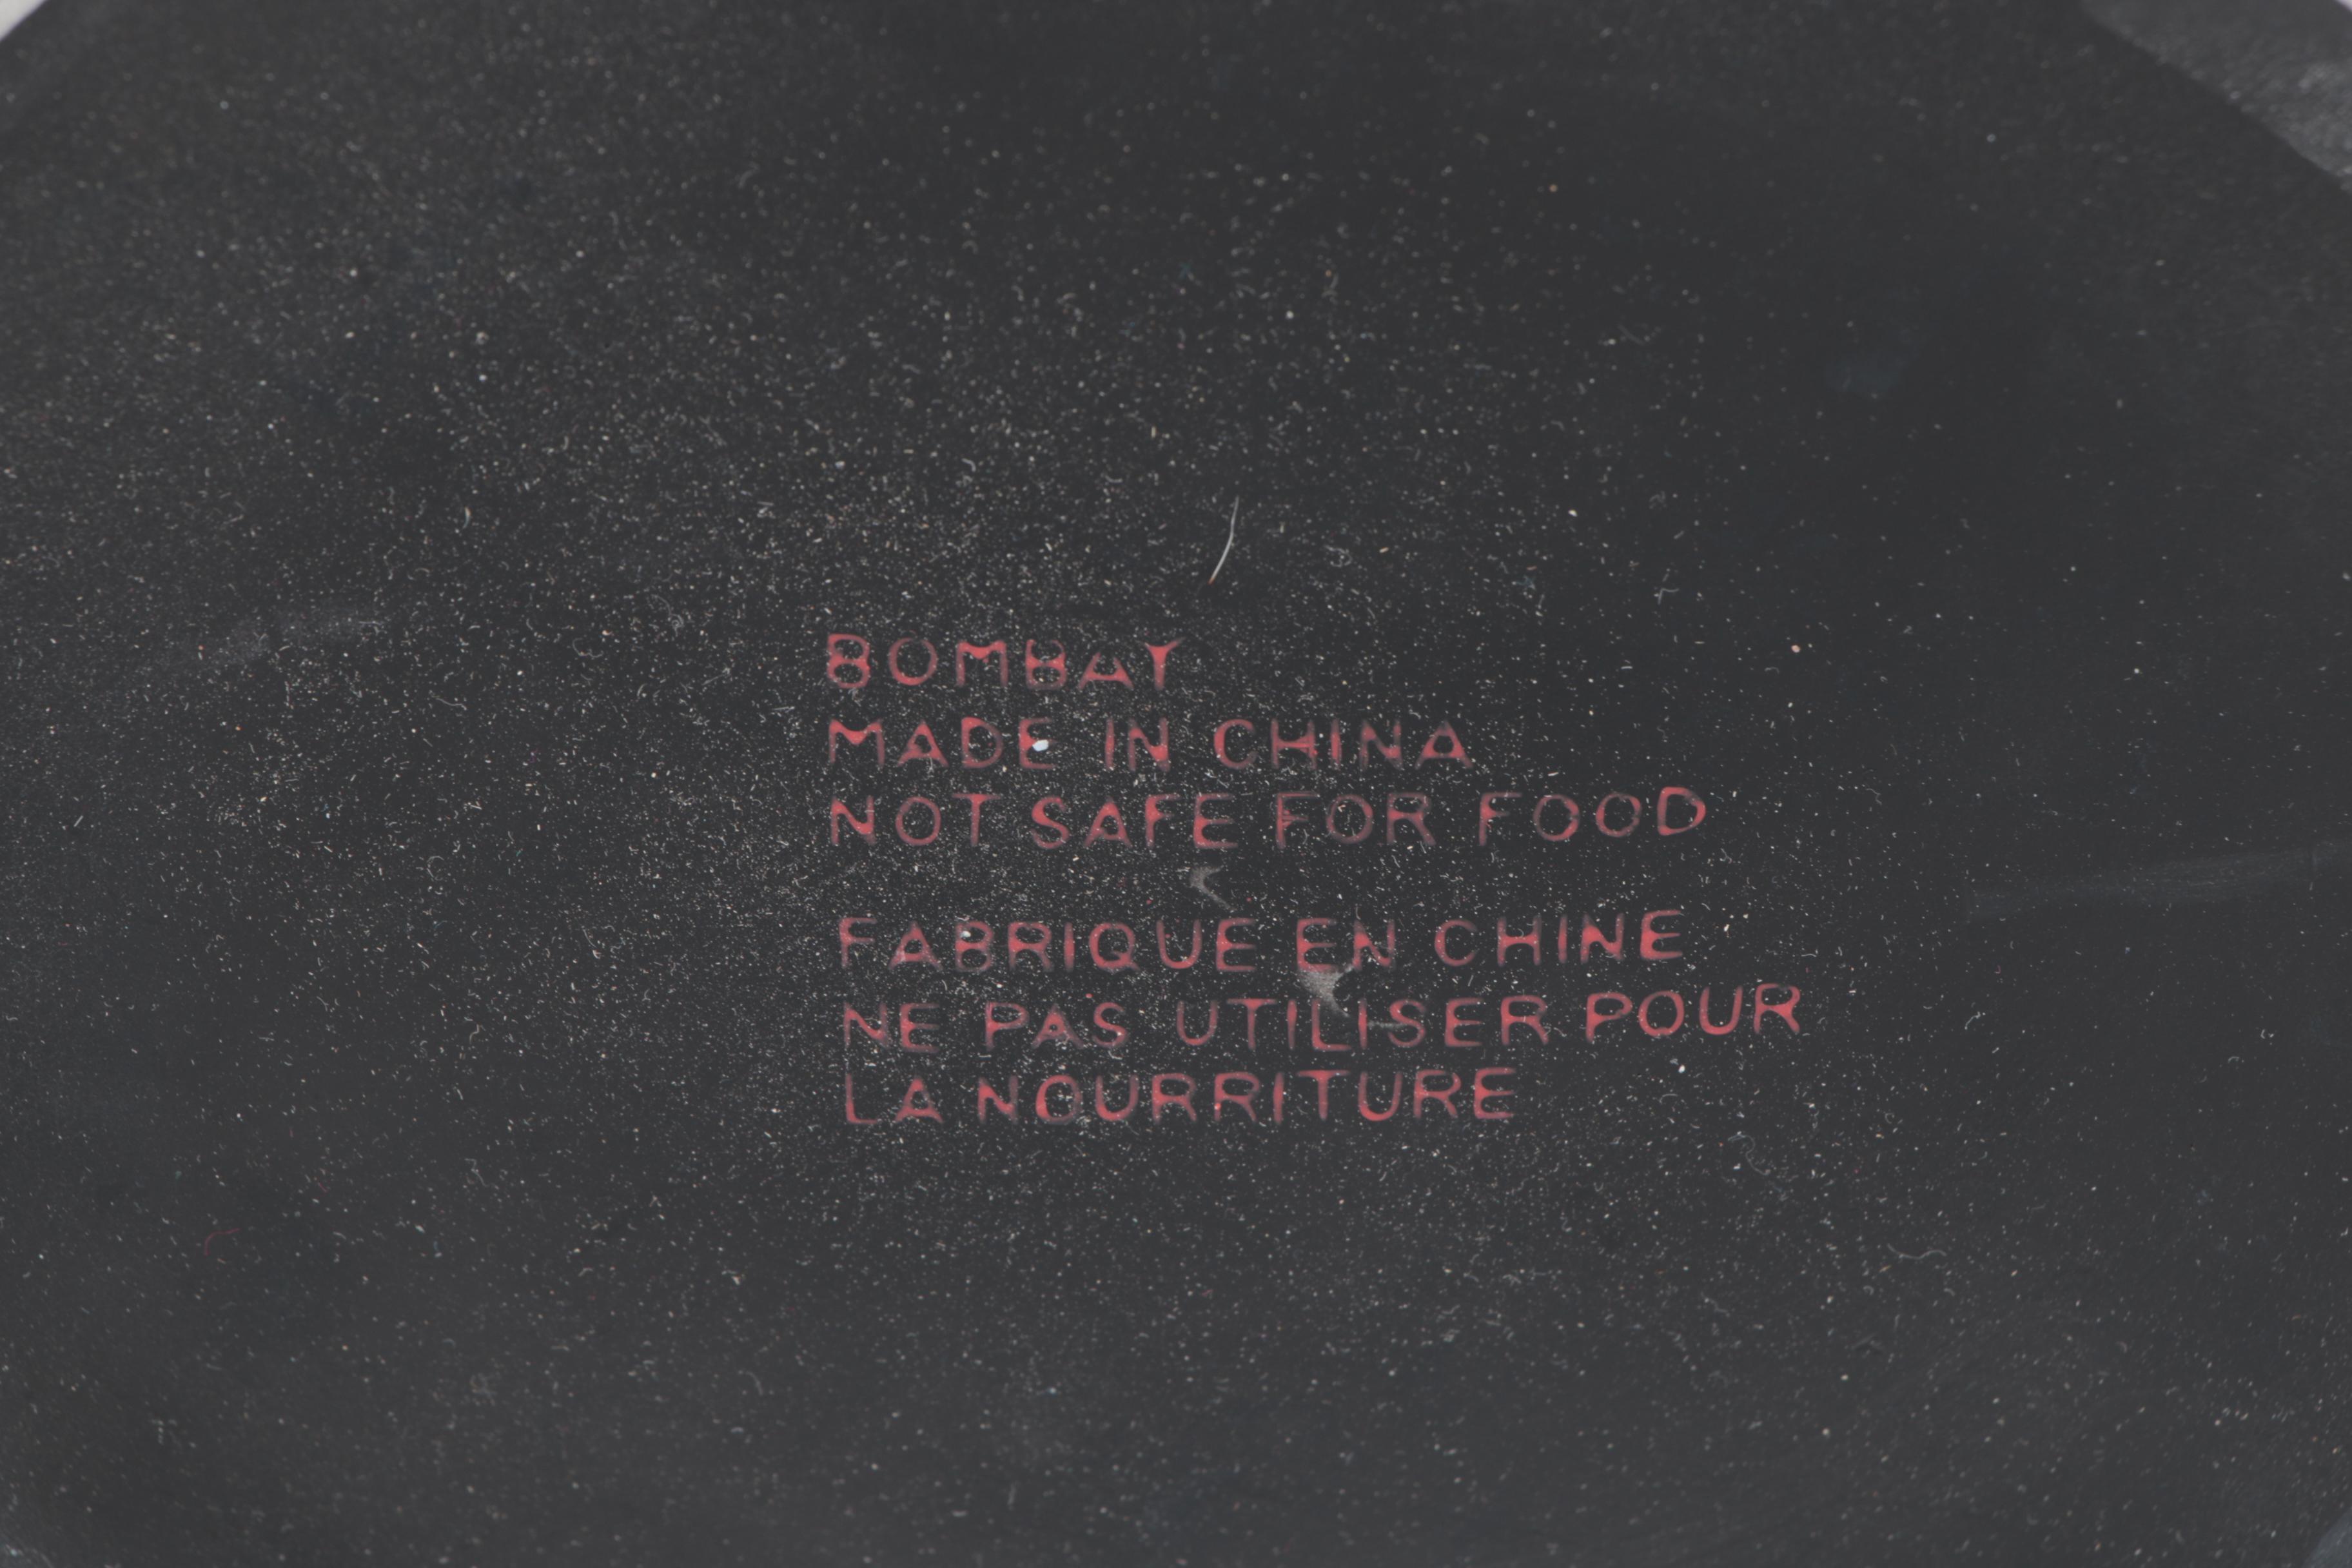 BOMBAY
MADE IN CHINA
NOT SAFE FOR FOOD
FABRIQUE EN CHINE
NE PAS UTILISER POUR
LA NOURRITURE